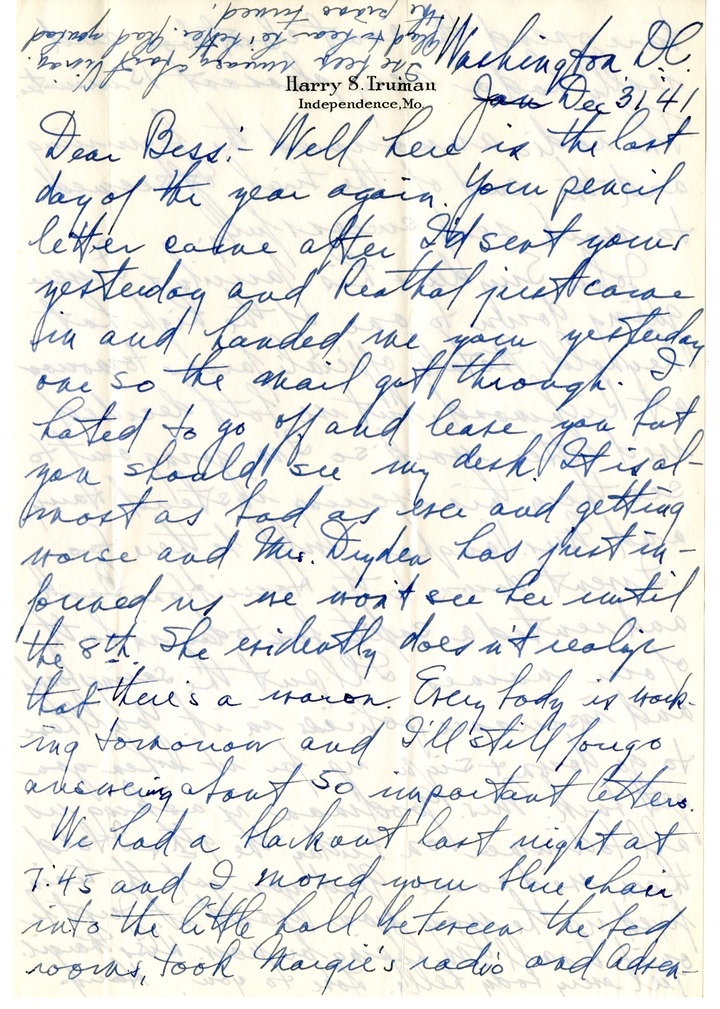 Washington, D.C.
Harry S. Truman
Independence, Mo.
Jan Dec 31, 41
Dear Bess:- Well here is the last
day of the year again. Your pencil
letter came after I'd sent yours
yesterday and Reathal just came
in and handed me your yesterday
one so the mail got through. I
hated to go off and leave you but
you should see my desk. It is al-
most as bad as ever and getting
worse and Mrs. Dryden has just in-
formed us we won't see her until
the 8th. She evidently doesn't realize
that there's a war on. Everybody is work-
ing tomorrow and I'll still forgo
answering about 50 important letters.
We had a blackout last night at
7:45 and I moved your blue chair
into the little hall between the bed
rooms, took Margie's radio and Adven-
glad to hear
Glad you had
the piano tuned.